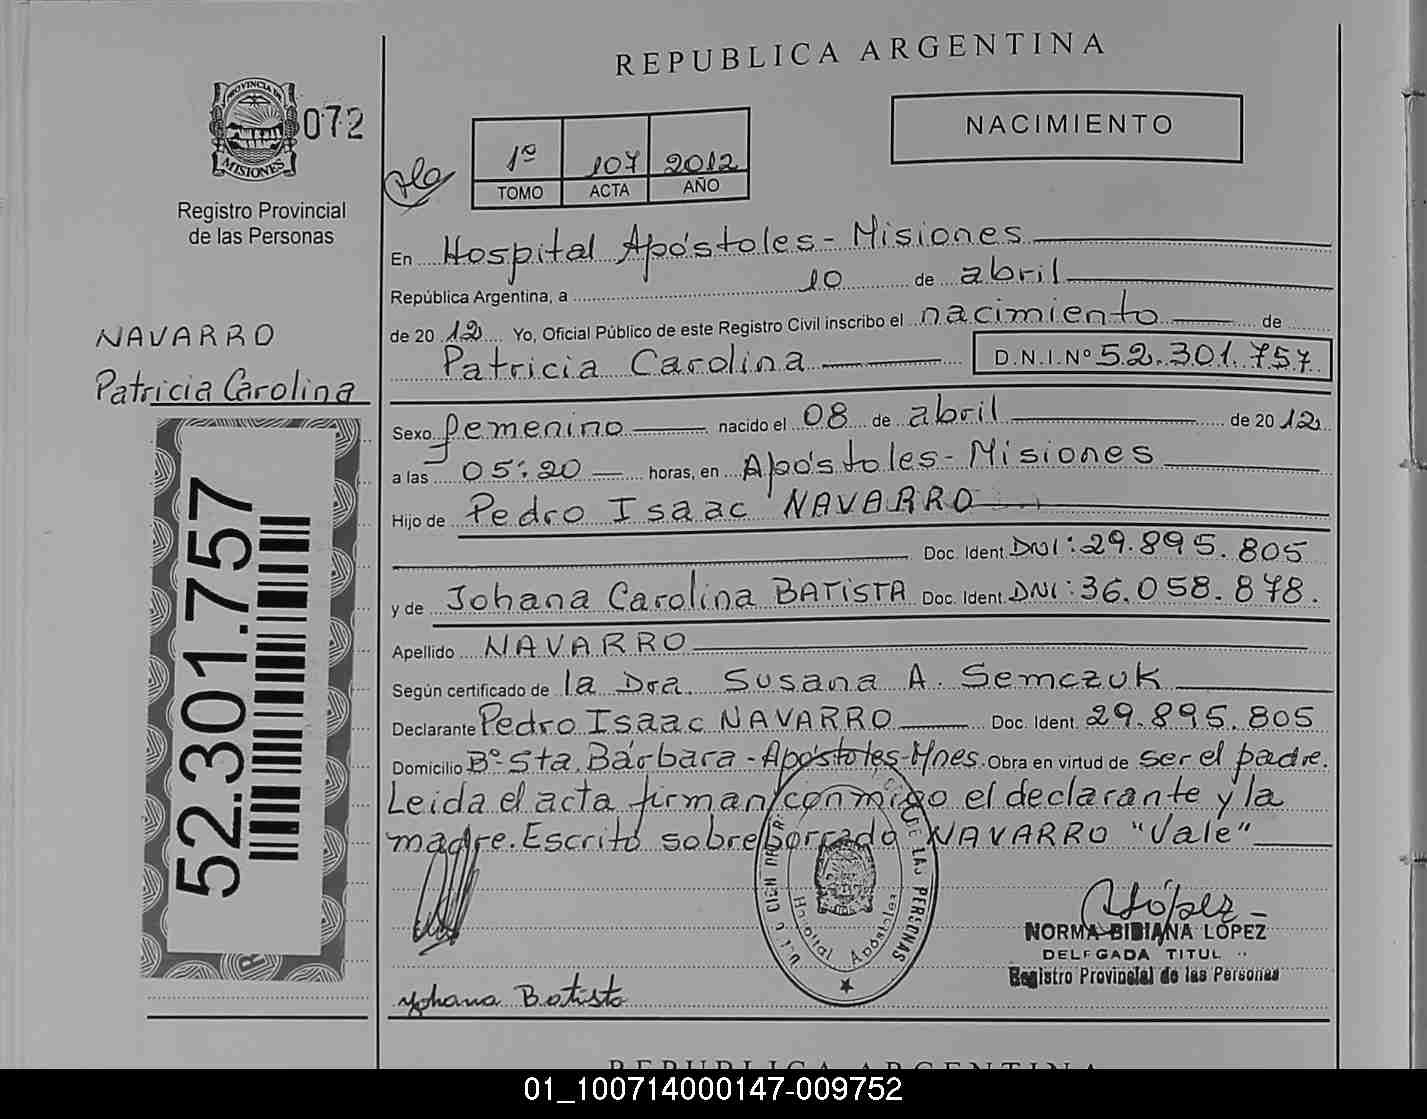 REPUBLICA ARGENTINA
PROVINCIA DE
MISIONES
072
Registro Provincial
de las Personas
1º 107 2012
TOMO ACTA AÑO
NACIMIENTO
En Hospital Apóstoles - Misiones
República Argentina, a 10 de abril
de 2012 Yo, Oficial Público de este Registro Civil inscribo el nacimiento de
Patricia Carolina D.N.I.Nº 52.301.757
NAVARRO
Patricia Carolina
Sexo femenino nacido el 08 de abril de 2012
a las 05:20 horas, en Apóstoles - Misiones
Hijo de Pedro Isaac NAVARRO
Doc. Ident. DNI: 29.895.805
y de Johana Carolina BATISTA Doc. Ident. DNI: 36.058.878.
Apellido NAVARRO
Según certificado de la Dra. Susana A. Semczuk
Declarante Pedro Isaac NAVARRO Doc. Ident. 29.895.805
Domicilio Bº Sta. Bárbara - Apóstoles - Mnes. Obra en virtud de ser el padre.
Leida el acta firman conmigo el declarante y la
madre. Escrito sobreborrado NAVARRO "Vale"
52.301.757
DE LAS PERSONAS
Hospital Apóstoles
López
NORMA BIBIANA LOPEZ
DELEGADA TITUL
Registro Provincial de las Personas
Yohana Batista
REPUBLICA ARGENTINA
01_100714000147-009752